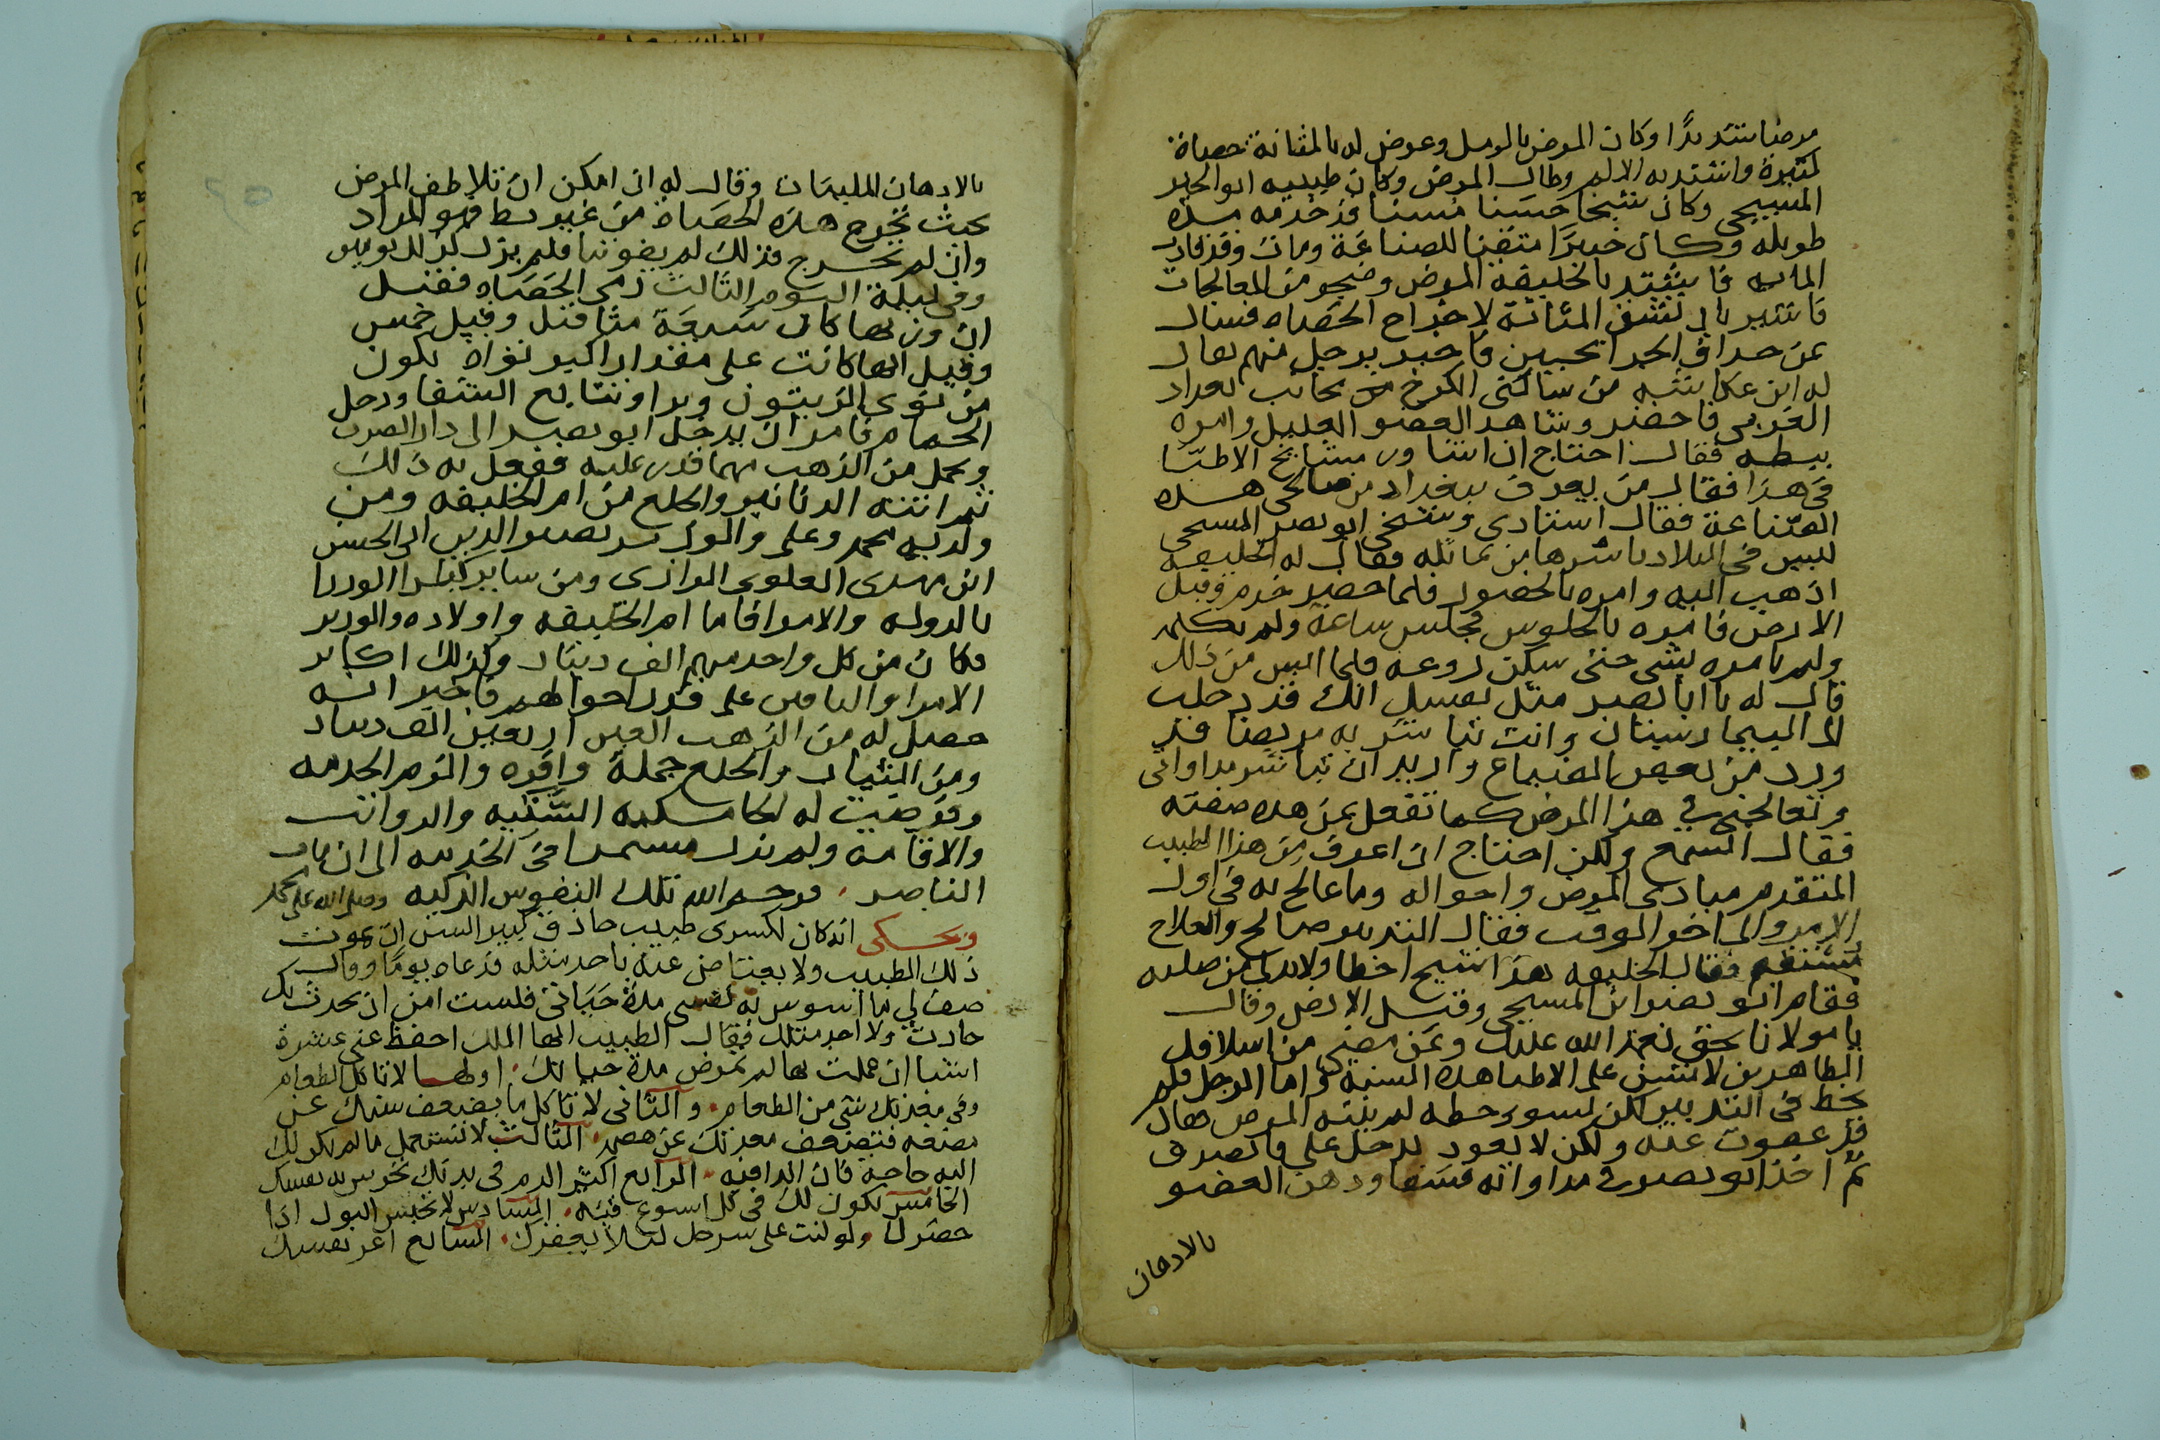 مرضا شديدًا وكان المرض بالرمل وعرض له بالمثانة حصاة
كبيرة واشتد به الالم وطال المرض وكان طبيبه ابو الخير
المسيحي وكان شيخا حسنا مسنا قد خدمه مدة
طويله وكان خبيرا متقنا للصناعة ومات وقد قارب
المايه فاشتد بالخليفة المرض وضجر من المعالجات
فاشير بان تشق المثانة لاخراج الحصاه فسال
عن حداق الجرايحيين فاخبر برجل منهم يقال
له ابن عكاشه من ساكني الكرخ من بجانب بغداد
الغربي فاحضر وشاهد العضو العليل وامره
ببطه فقال احتاج ان اشاور مشايخ الاطبا
في هذا فقال من يعرف ببغداد من صالحي هذه
الصناعة فقال استادي وشيخي ابو نصر المسيحي
ليس في البلاد باسرها من يماثله فقال له الخليفة
اذهب اليه وامره بالحضور فلما حضر خدم وقبل
الارض فامره بالجلوس فجلس ساعة ولم يكلمه
ولم يامره بشي حتى سكن روعه فلما انس من ذلك
قال له يا ابا نصر مثل نفسك انك قد دخلت
الى البيمارستان وانت تباشر به مريضا قد
ورد من بعض الضياع واريد ان تباشر مداواتي
وتعالجني في هذا المرض كما تفعل بمن هذه صفته
فقال السمع ولكن احتاج ان اعرف من هذا الطبيب
المتقدم مبادى المرض واحواله وما عالج به في اول
الامر والى اخر الوقت فقال التدبير صالح والعلاج
مستقيم فقال الخليفه هذا الشيخ اخطا ولا بد لي من صلبه
فقام ابو نصر ابن المسيحي وقبل الارض وقال
يا مولانا بحق نعمة الله عليك وبمن مضى من اسلافك
الطاهرين لا تسن على الاطبا هذه السنة واما الرجل فلم
يخط في التدبير لكن لسو حظه لم ينته المرض فقال
قد عفوت عنه ولكن لا يعود يدخل علي فانصرف
ثم اخذ ابو نصر في مداواته فسقا ودهن العضو
بالادهان
بالادهان الملينات وقال له ان امكن ان نلاطف المرض
بحيث نخرج هذه الحصاة من غير بط فهو المراد
وان لم تخرج فذلك لم يفوتنا فلم يزل كذلك يومين
وفي ليلة اليوم الثالث رمى الحصاه فقيل
ان وزنها كان سبعة مثاقيل وقيل خمس
وقيل انها كانت على مقدار اكبر نواه تكون
من نوى الزيتون وبرا وتتابع الشفا ودخل
الحمام فامر ان يدخل ابو نصر الى دار الضرب
ويحمل من الذهب مهما قدر عليه ففعل به ذلك
ثم اتته الدنانير والخلع من ام الخليفه ومن
ولديه محمد وعلي والوزير نصير الدين ابي الحسن
ابن مهدي العلوي الرازي ومن ساير كبرا الوزرا
بالدوله والامرا فاما ام الخليفه واولاده والوزير
فكان من كل واحد منهم الف دينار وكذلك اكابر
الامرا والباقين على قدر احوالهم فاخبر انه
حصل له من الذهب العين اربعين الف دينار
ومن الثياب والخلع جملة وافره والتزم الخدمه
وفرضت له الجامكيه السنيه والرواتب
والاقامه ولم يزل مستمرا في الخدمه الى ان مات
الناصر . فرحم الله تلك النفوس الزكيه وصلى الله على محمد
ويحكى انه كان لكسرى طبيب حاذق كبير السن ان يموت
ذلك الطبيب ولا يعتاض عنه باحد مثله فدعاه يومًا وقال
صف لي ما اسوس به نفسي مدة حياتي فلست امن ان يحدث بك
حادث ولا احد مثلك فقال الطبيب ايها الملك احفظ عني عشرة
اشيا ان عملت بها لم تمرض مدة حياتك . اولها لا تاكل الطعام
وفي معدتك شي من الطعام . والثاني لا تاكل ما يضعف سنك عن
مضغه فتضعف معدتك عن هضمه . الثالث لا تستعمل ما لم يكن لك
اليه حاجة فان الدافيه . الرابع اكثر الدم في بدنك تحرس به نفسك
الخامس يكون لك في كل اسبوع قيئه . السادس لا تحبس البول اذا
حضرك ولو كنت على سرجك لئلا يحفزك . السابع اعر نفسك